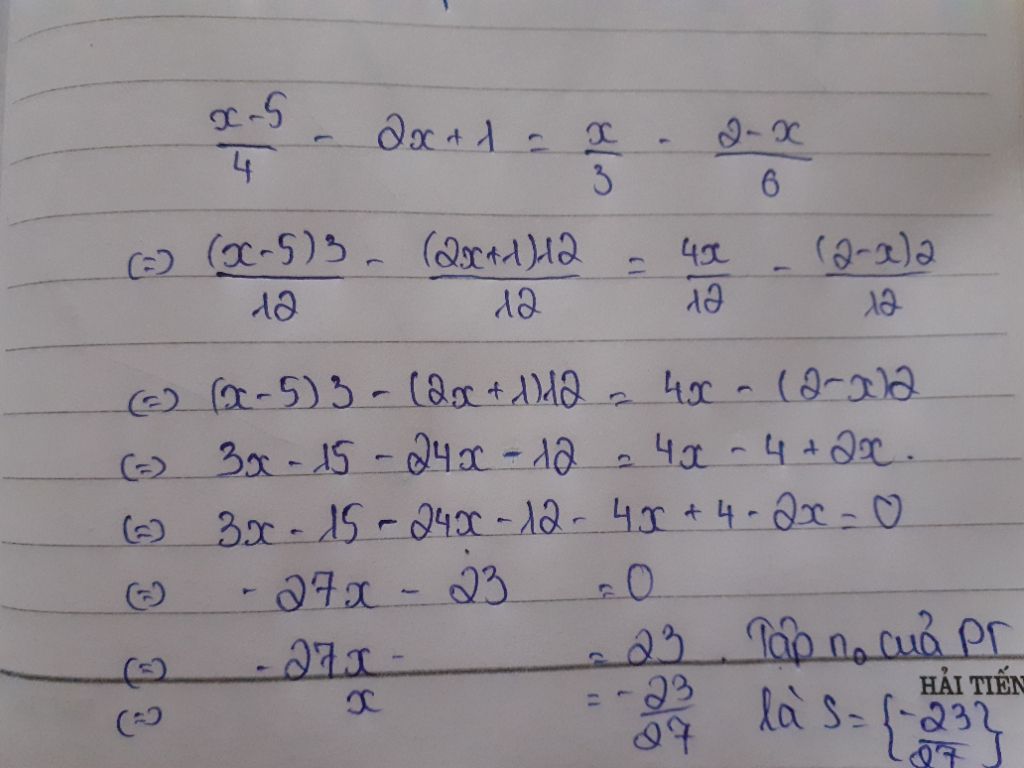 x-5/4 - 2x+1 = x/3 - 2-x/6
(=) (x-5)3/12 - (2x+1)12/12 = 4x/12 - (2-x)2/12
(=) (x-5)3 - (2x+1)12 = 4x - (2-x)2
(=) 3x - 15 - 24x - 12 = 4x - 4 + 2x.
(=) 3x - 15 - 24x - 12 - 4x + 4 - 2x = 0
(=) - 27x - 23 = 0
(=) - 27x - = 23. Tập no của PT
HẢI TIẾN
(=) x = -23/27 là S = {-23/27}